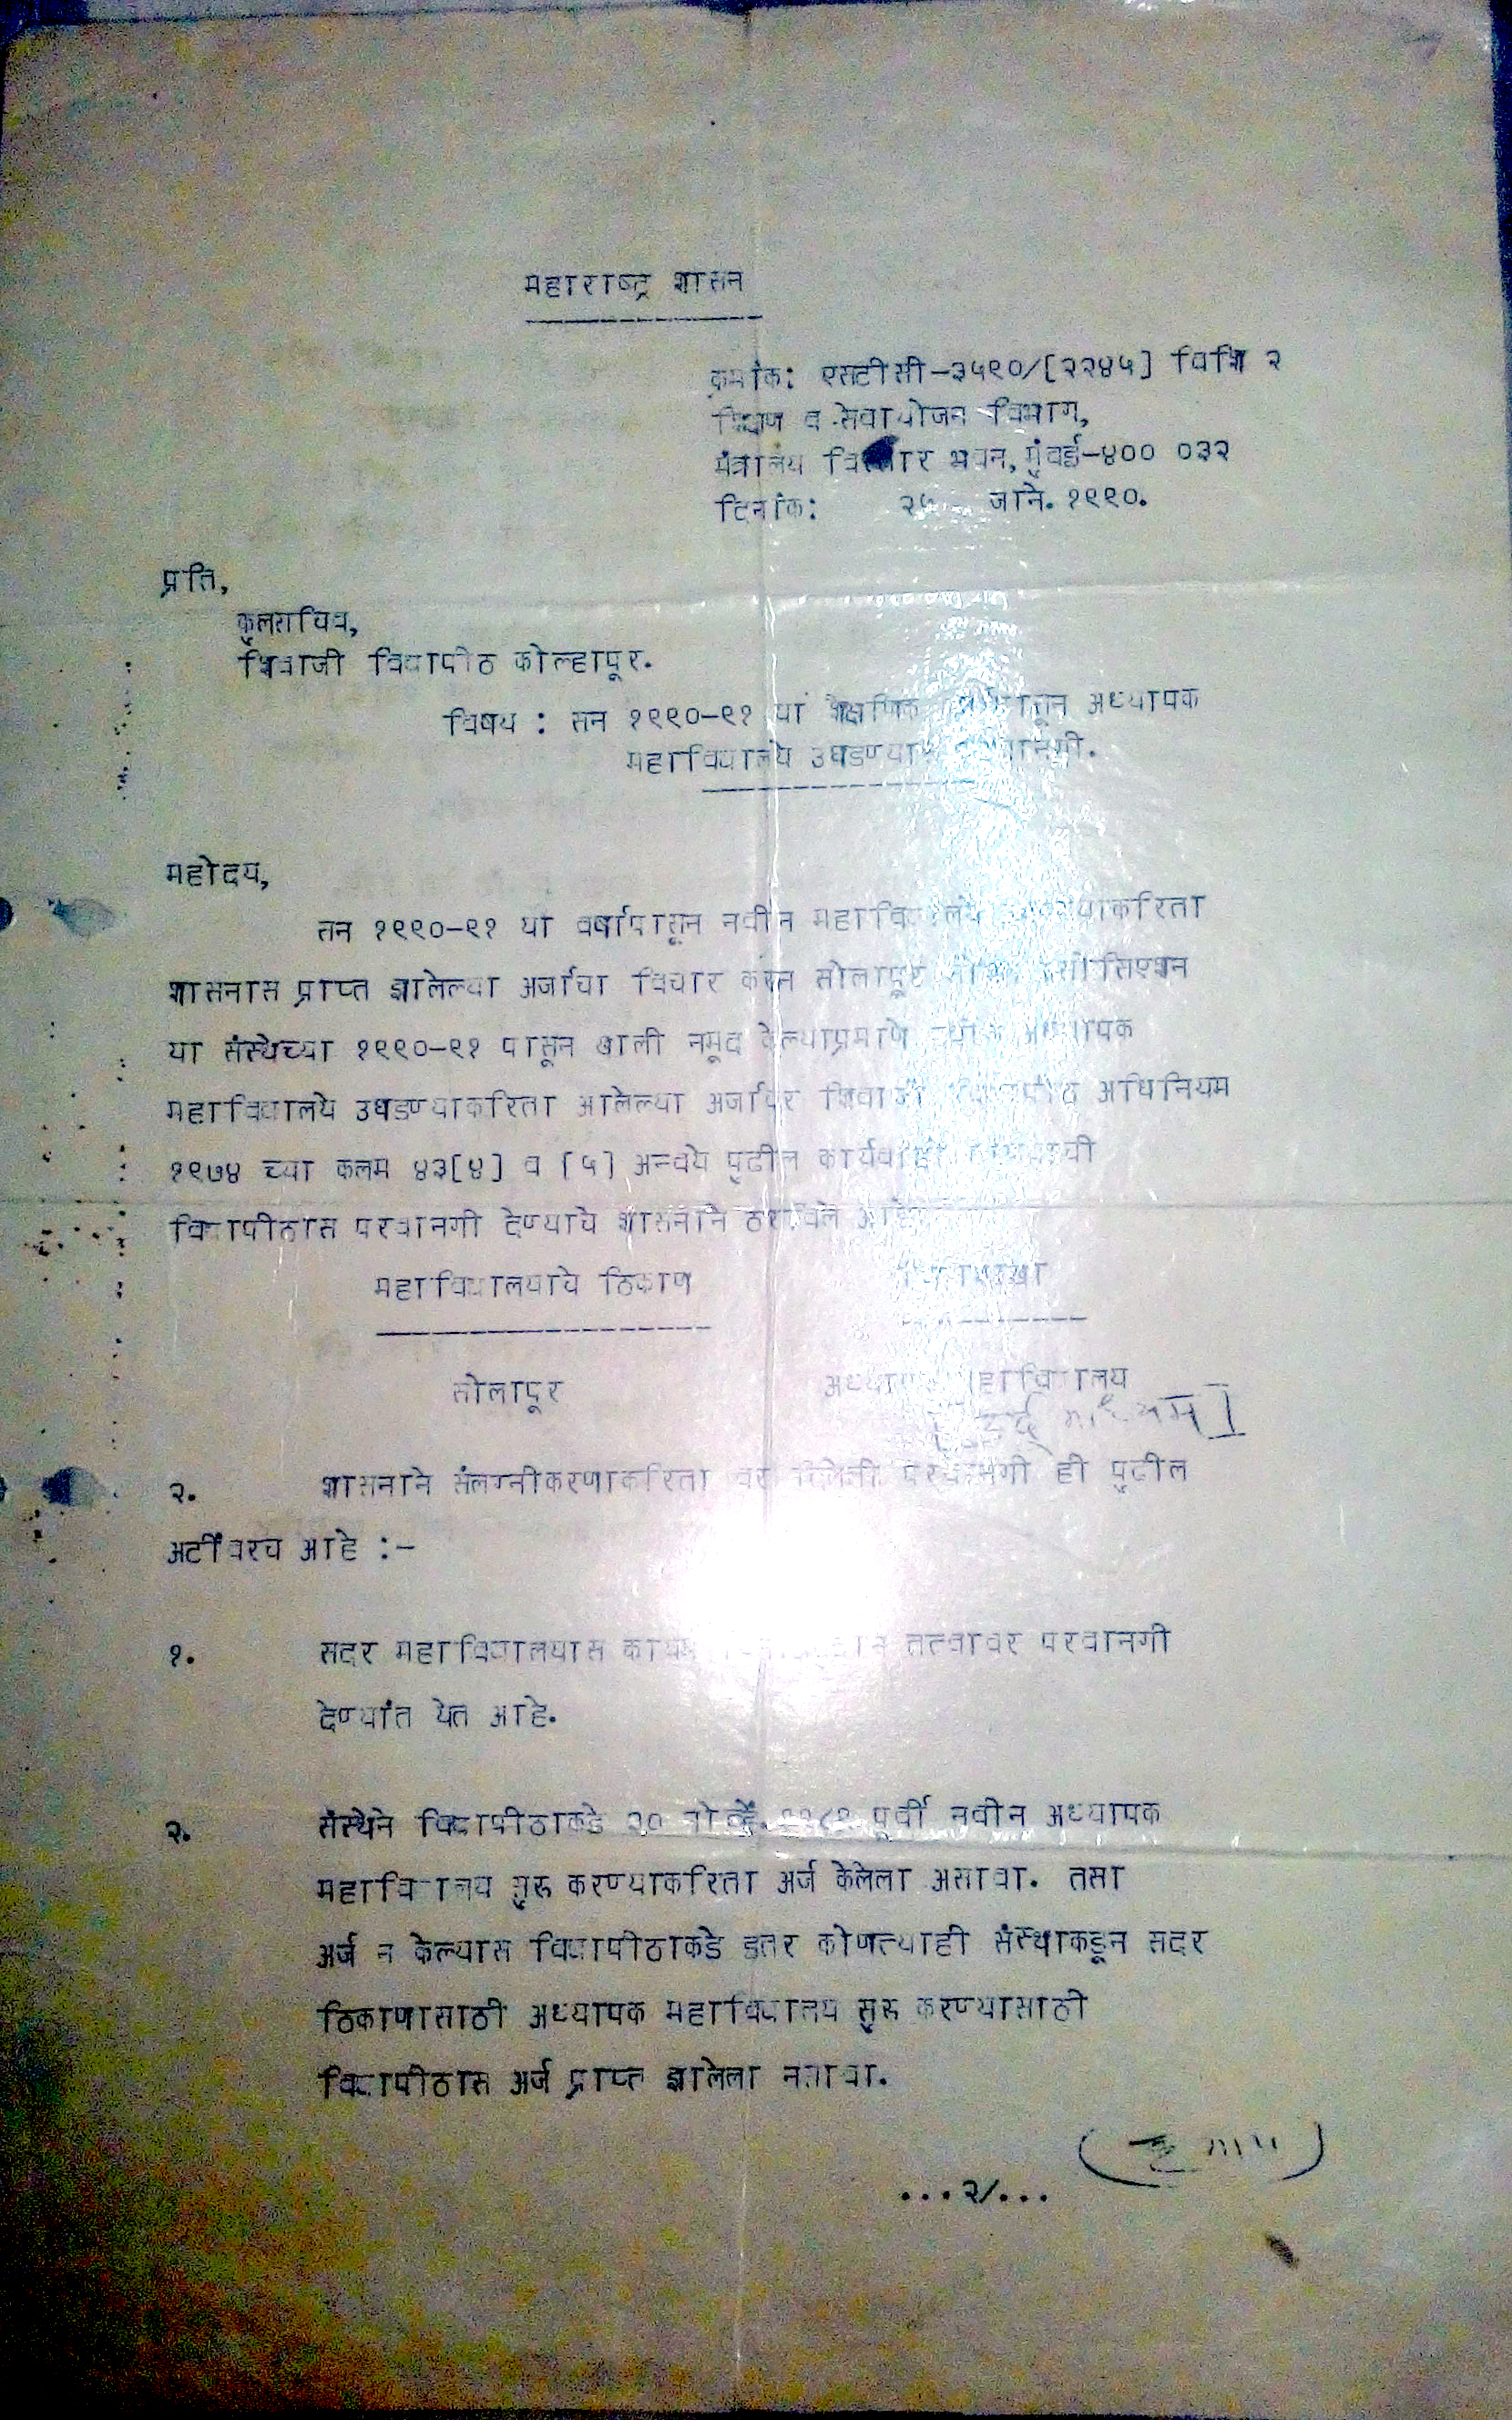 महाराष्ट्र शासन
क्रमांक: एसटीसी-३५९०/[२२४५] विशि २
शिक्षण व सेवायोजन विभाग,
मंत्रालय विस्तार भवन, मुंबई-४०० ०३२
दिनांक: २५ जाने. १९९०.
प्रति,
कुलसचिव,
शिवाजी विद्यापीठ कोल्हापूर.
विषय : सन १९९०-९१ या शैक्षणिक अध्यापक
महाविद्यालये उघडण्यास परवानगी.
महोदय,
सन १९९०-९१ या वर्षापासून नवीन महाविद्यालये उघडण्याकरिता
शासनास प्राप्त झालेल्या अर्जाचा विचार करून सोलापूर असोसिएशन
या संस्थेच्या १९९०-९१ पासून खाली नमूद केल्याप्रमाणे अध्यापक
महाविद्यालये उघडण्याकरिता आलेल्या अर्जावर शिवाजी विद्यापीठ अधिनियम
१९७४ च्या कलम ४३[४] व [५] अन्वये पुढील कार्यवाही करण्याची
विद्यापीठास परवानगी देण्याचे शासनाने ठरविले आहे
महाविद्यालयाचे ठिकाण विद्याशाखा
सोलापूर अध्यापक महाविद्यालय
[उर्दू माध्यम]
२. शासनाने संलग्नीकरणाकरिता वर दिलेली परवानगी ही पुढील
अटींवरच आहे :-
१. सदर महाविद्यालयास कायम विना अनुदान तत्वावर परवानगी
देण्यांत येत आहे.
२. संस्थेने विद्यापीठाकडे नोव्हें. पूर्वी नवीन अध्यापक
महाविद्यालय सुरू करण्याकरिता अर्ज केलेला असावा. तसा
अर्ज न केल्यास विद्यापीठाकडे इतर कोणत्याही संस्थाकडून सदर
ठिकाणासाठी अध्यापक महाविद्यालय सुरू करण्यासाठी
विद्यापीठास अर्ज प्राप्त झालेला नसावा.
...२/...